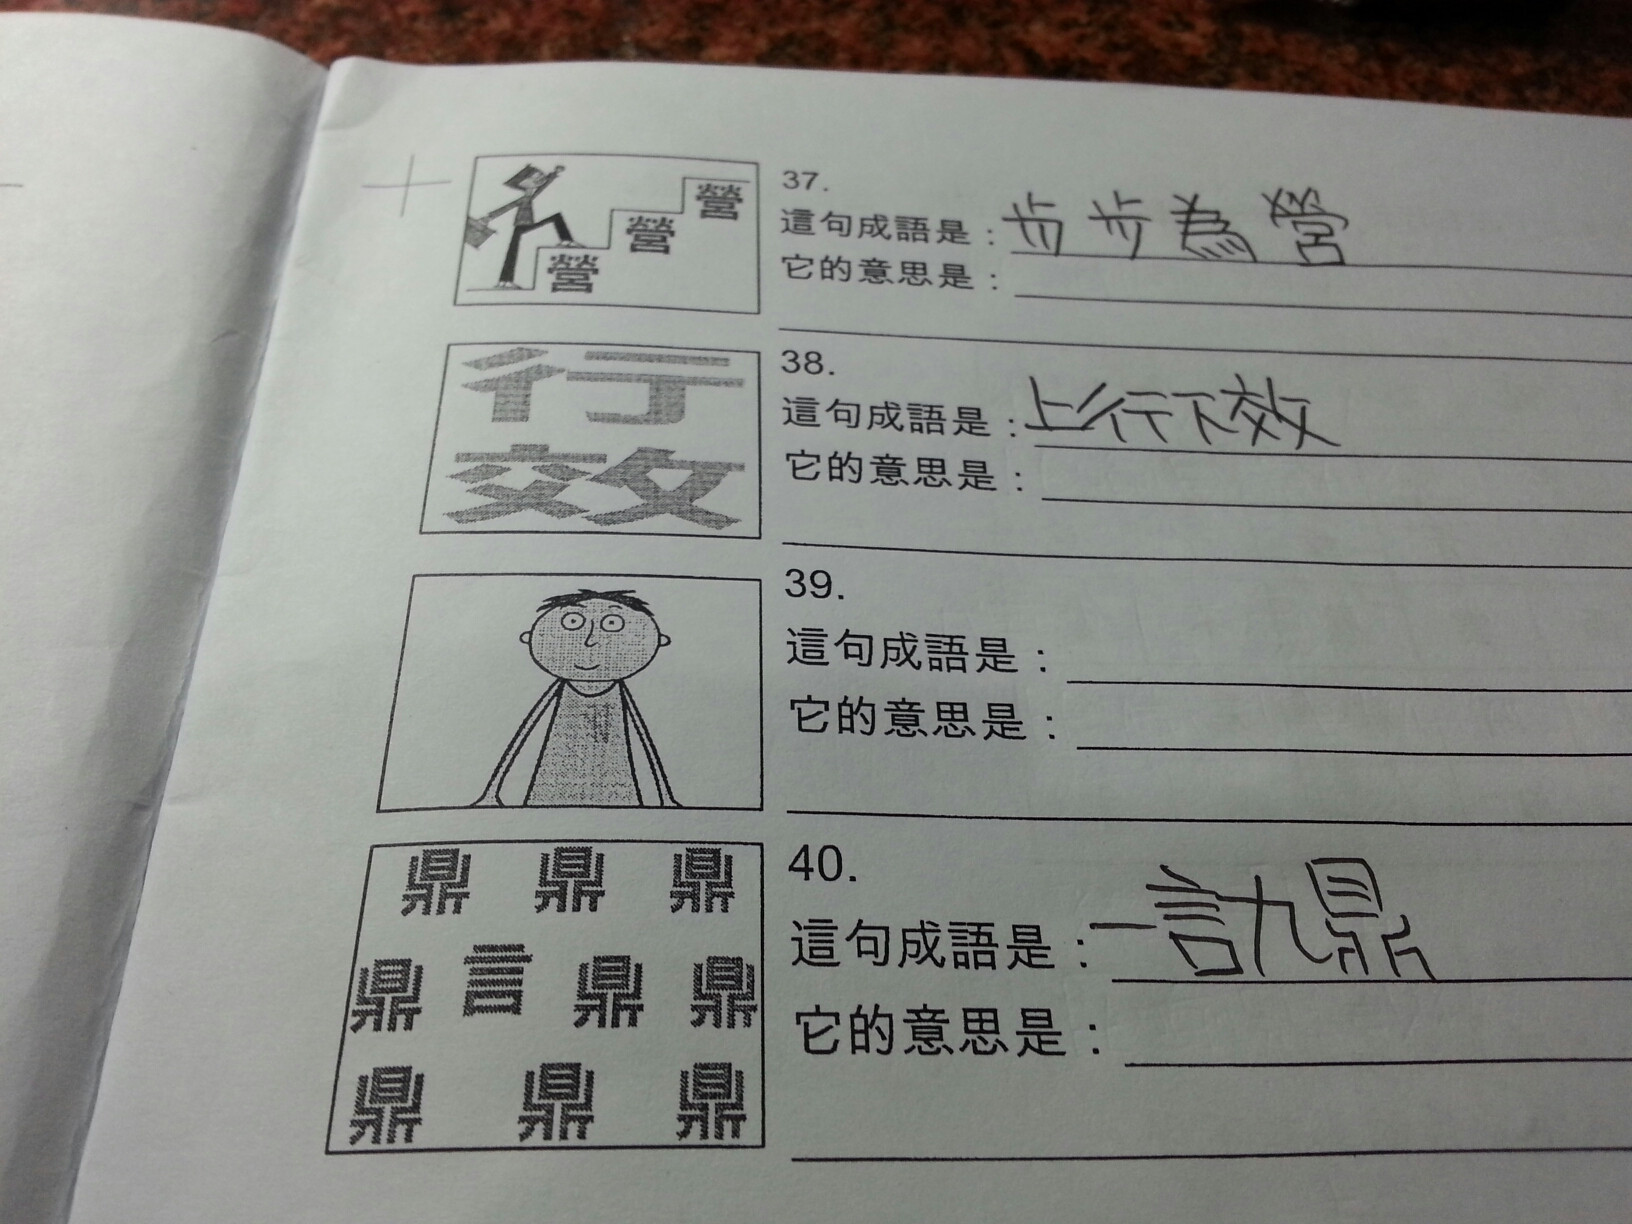 營
營
營
37.
這句成語是：步步為營
它的意思是：
行
效
38.
這句成語是：上行下效
它的意思是：
39.
這句成語是：
它的意思是：
鼎 鼎 鼎
鼎 言 鼎 鼎
鼎 鼎 鼎
40.
這句成語是：一言九鼎
它的意思是：